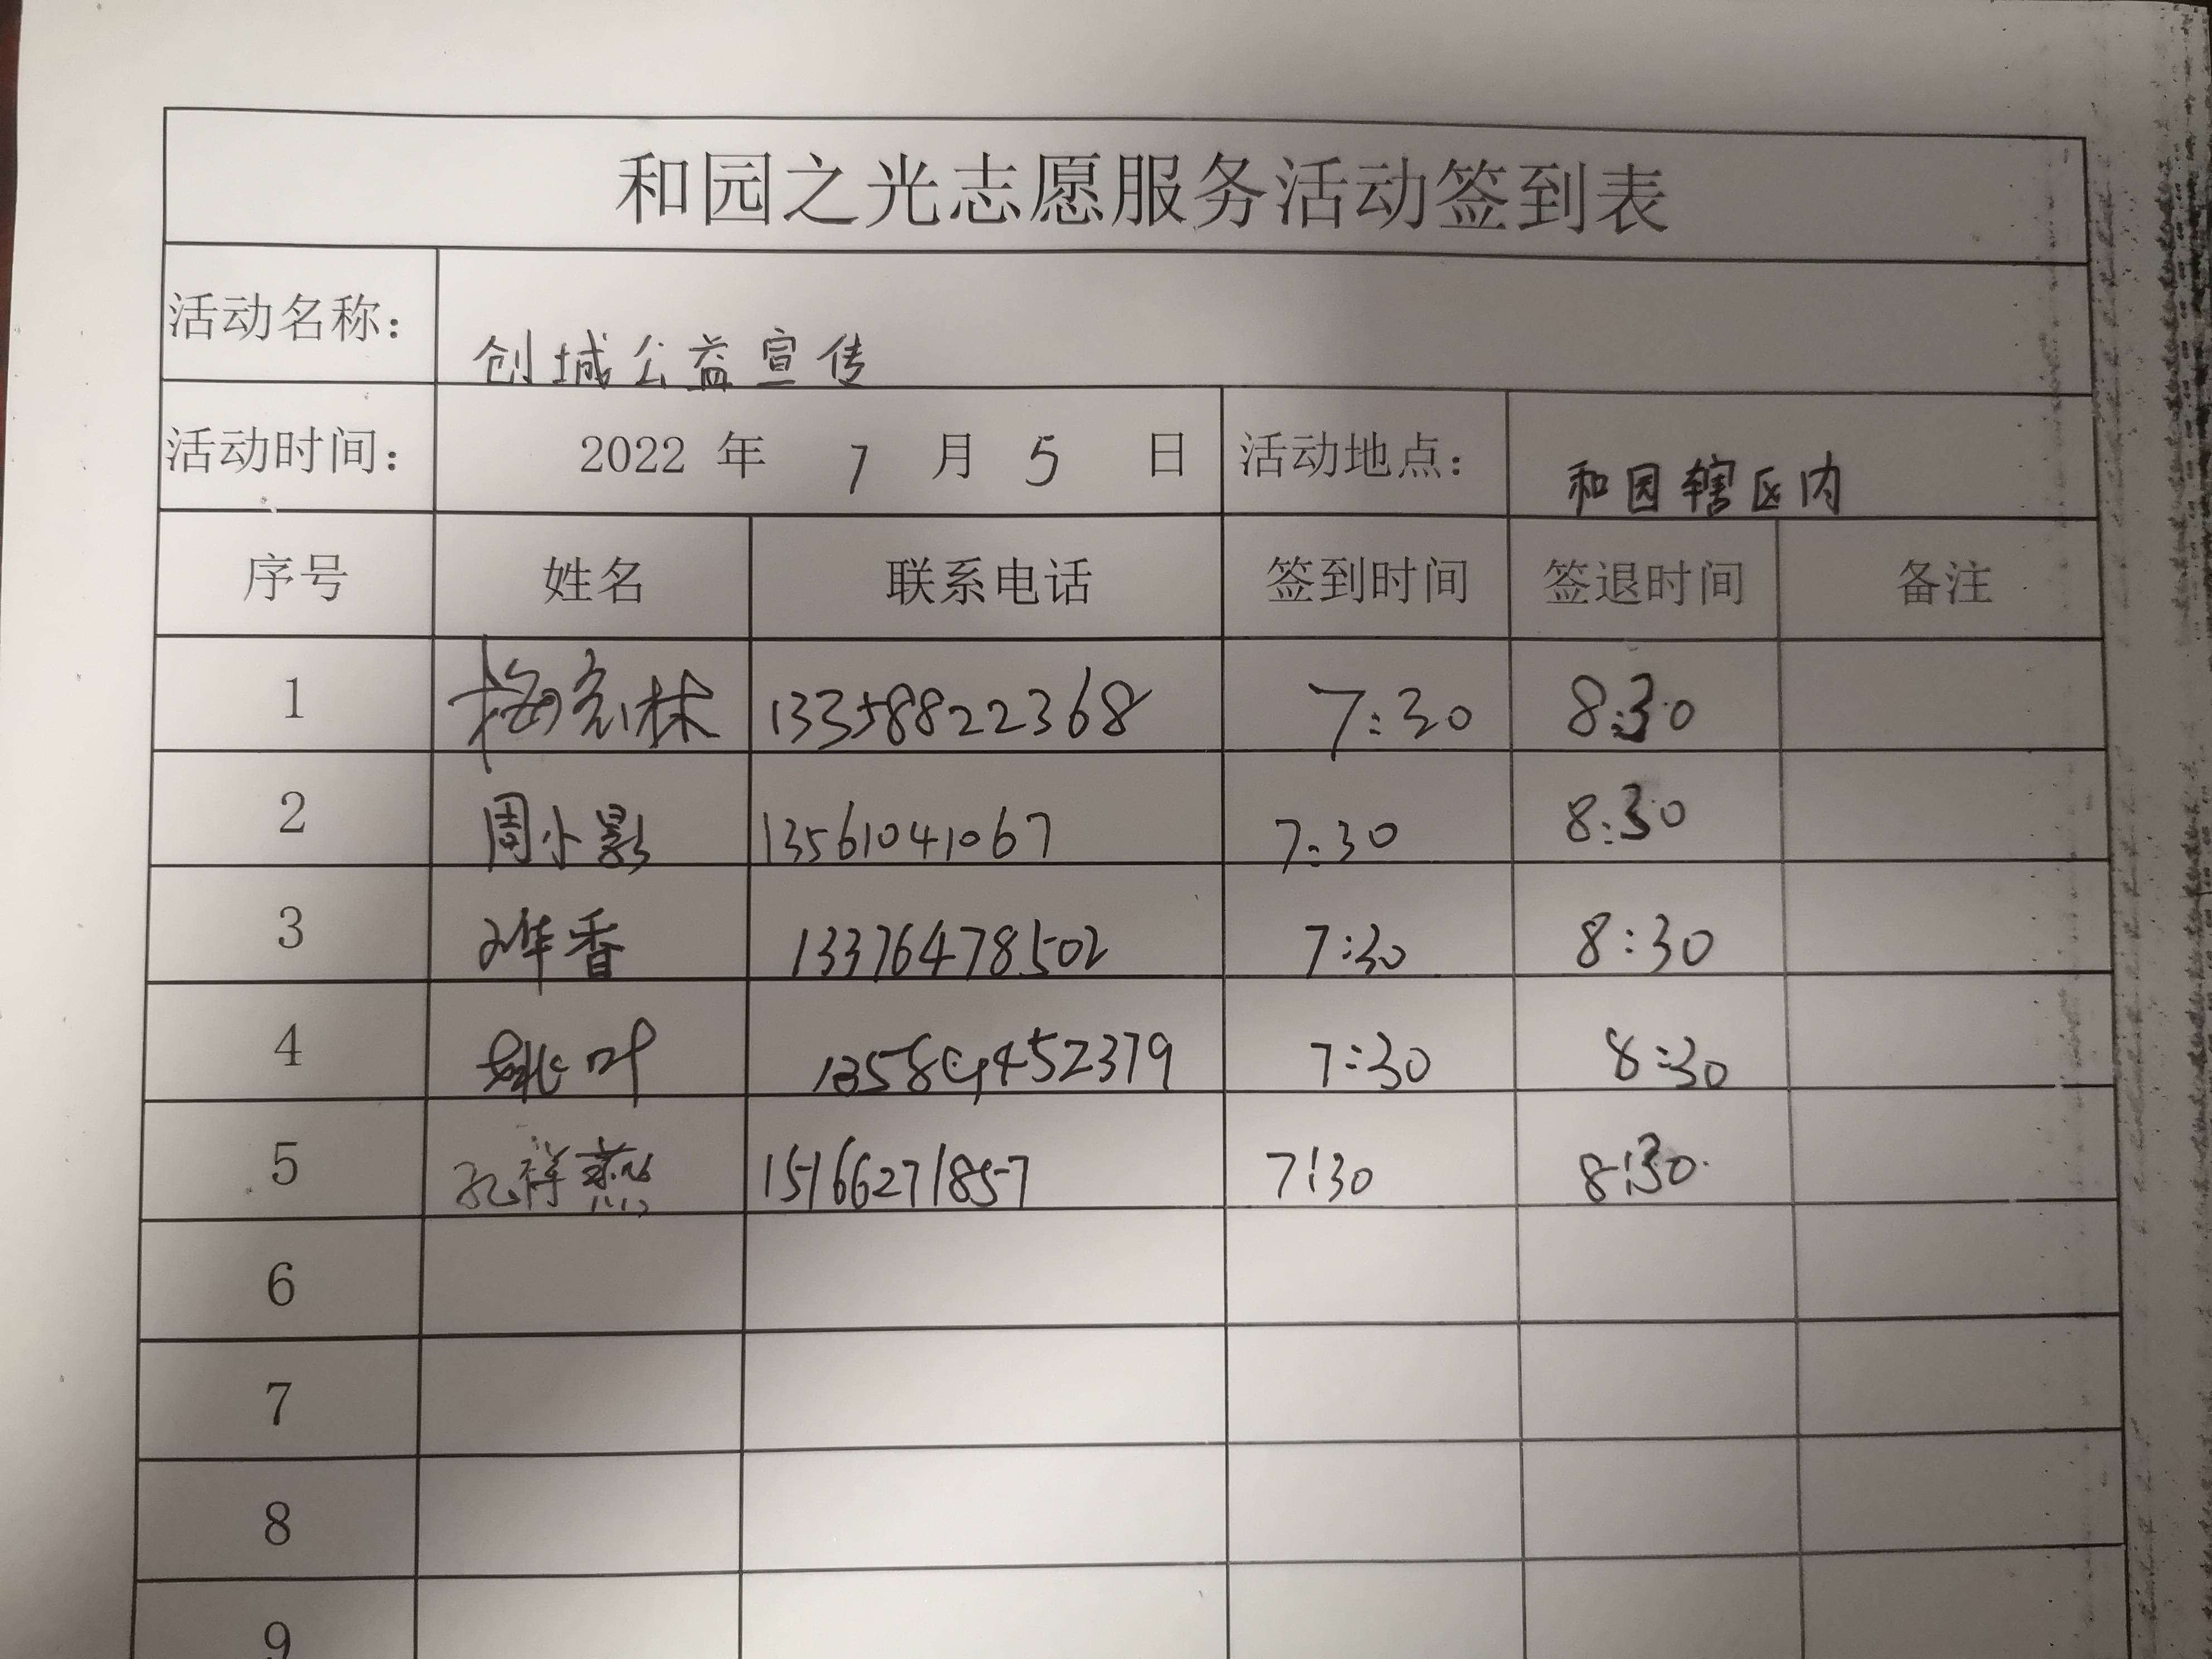 和园之光志愿服务活动签到表
活动名称： 创城公益宣传
活动时间： 2022 年 7 月 5 日 活动地点： 和园辖区内
序号 姓名 联系电话 签到时间 签退时间 备注
1 梅宏林 13358822368 7:30 8:30
2 周小影 13561041067 7:30 8:30
3 香 13376478502 7:30 8:30
4 姚叶 7:30 8:30
5 孔祥燕 15166271857 7:30 8:30
6
7
8
9